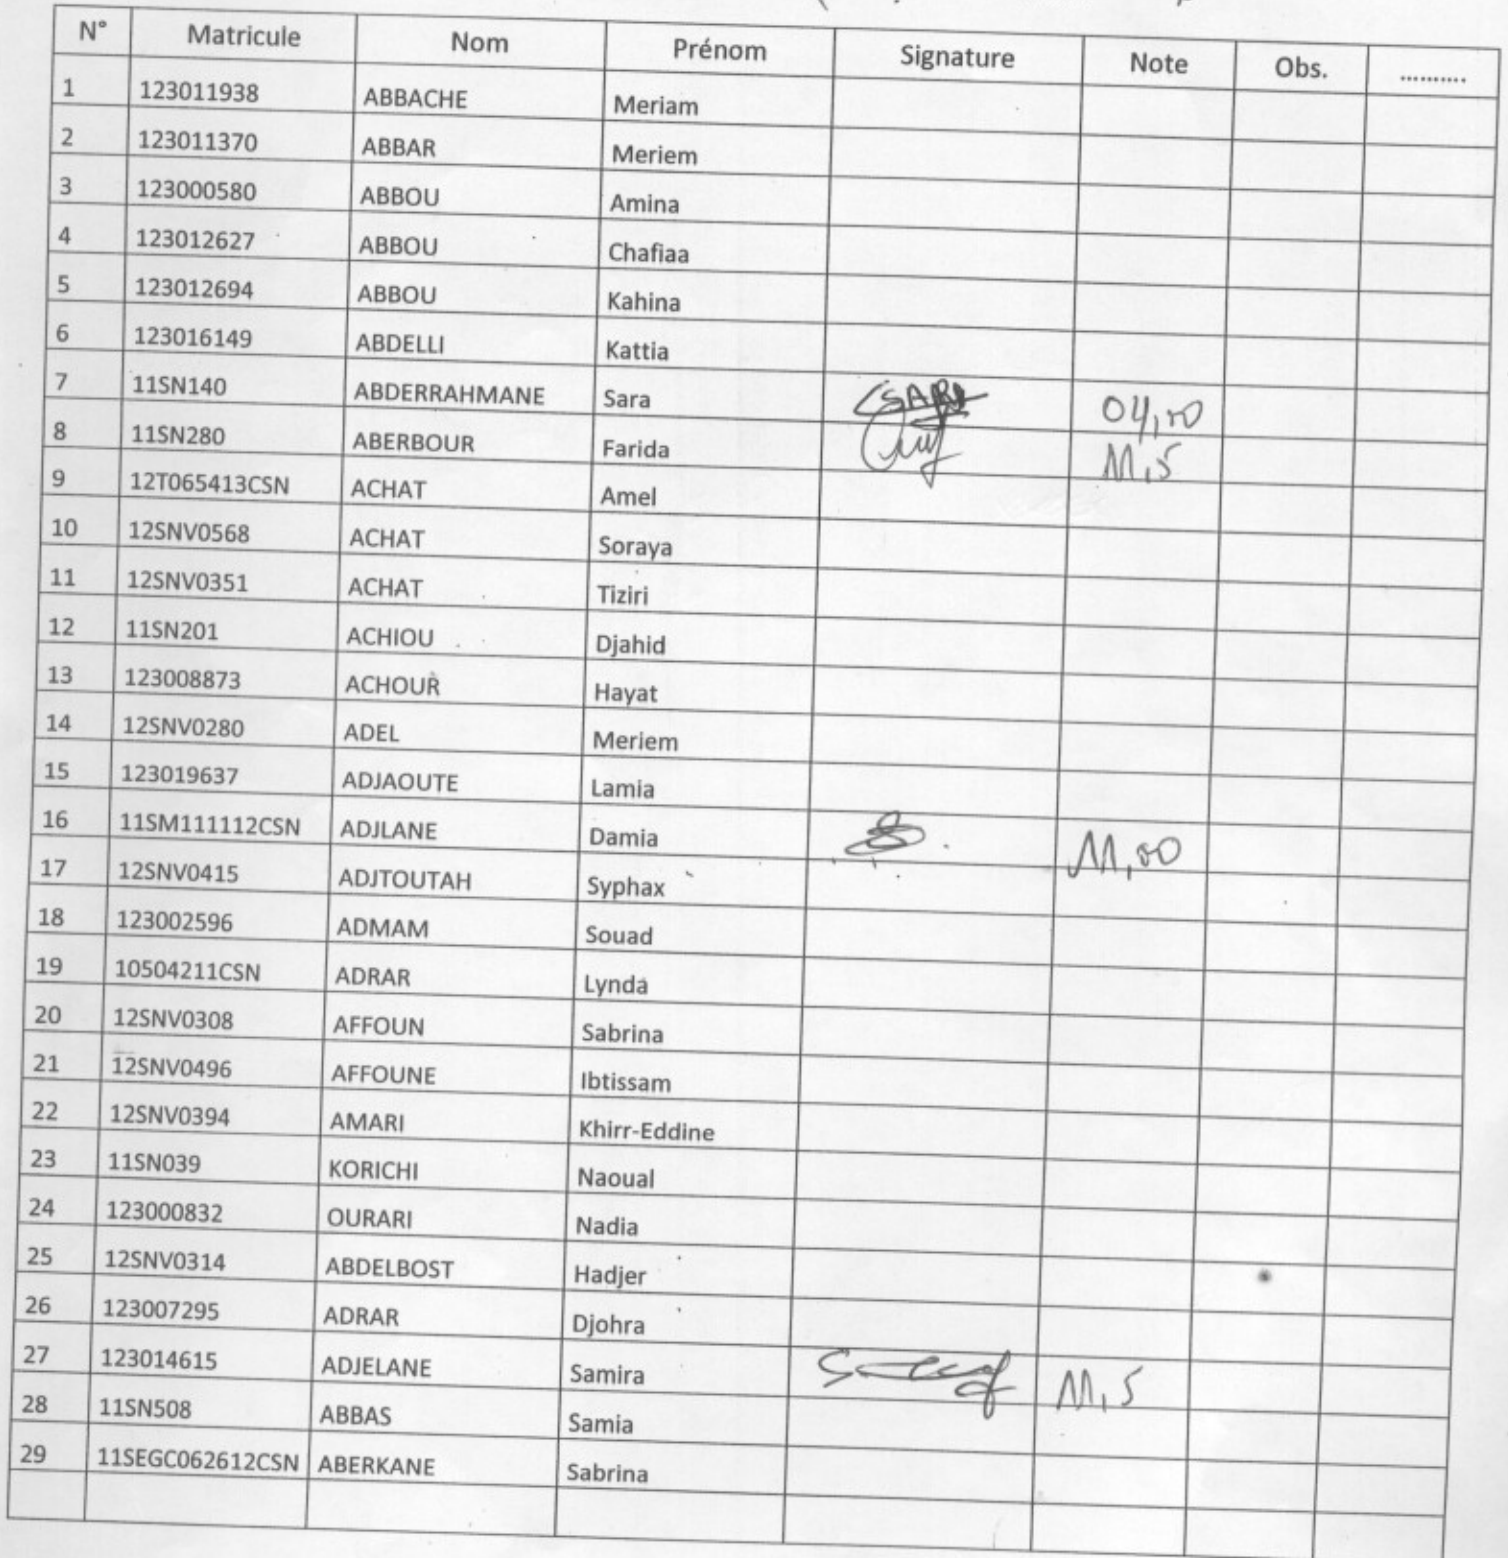 N° Matricule Nom Prénom Signature Note Obs. ..........
1 123011938 ABBACHE Meriam
2 123011370 ABBAR Meriem
3 123000580 ABBOU Amina
4 123012627 ABBOU Chafiaa
5 123012694 ABBOU Kahina
6 123016149 ABDELLI Kattia
7 11SN140 ABDERRAHMANE Sara SARA 04,00
8 11SN280 ABERBOUR Farida 11,5
9 12T065413CSN ACHAT Amel
10 12SNV0568 ACHAT Soraya
11 12SNV0351 ACHAT Tiziri
12 11SN201 ACHIOU Djahid
13 123008873 ACHOUR Hayat
14 12SNV0280 ADEL Meriem
15 123019637 ADJAOUTE Lamia
16 11SM111112CSN ADJLANE Damia 11,00
17 12SNV0415 ADJTOUTAH Syphax
18 123002596 ADMAM Souad
19 10504211CSN ADRAR Lynda
20 12SNV0308 AFFOUN Sabrina
21 12SNV0496 AFFOUNE Ibtissam
22 12SNV0394 AMARI Khirr-Eddine
23 11SN039 KORICHI Naoual
24 123000832 OURARI Nadia
25 12SNV0314 ABDELBOST Hadjer
26 123007295 ADRAR Djohra
27 123014615 ADJELANE Samira 11,5
28 11SN508 ABBAS Samia
29 11SEGC062612CSN ABERKANE Sabrina